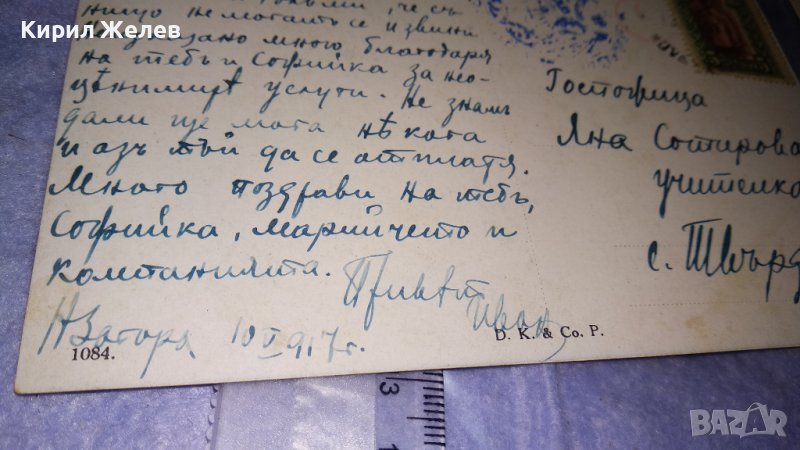 Кирил Желев
че съ
нищо не могатъ се извини
казано много благодаря
на тебъ и Софийка за нео-
цѣнимитѣ услуги. Не знамъ
дали ще мога нѣкога
и азъ тъй да се отплатя.
Много поздрави на тебъ,
Софийка, Марийчето и
компанията.
Привѣт
Иван
Н Загора 10 I 917 г.
1084.
D. K. & Co. P.
Госпожица
Яна Сотирова
учителка
с. Твърд
BAZAR
bg
3
1